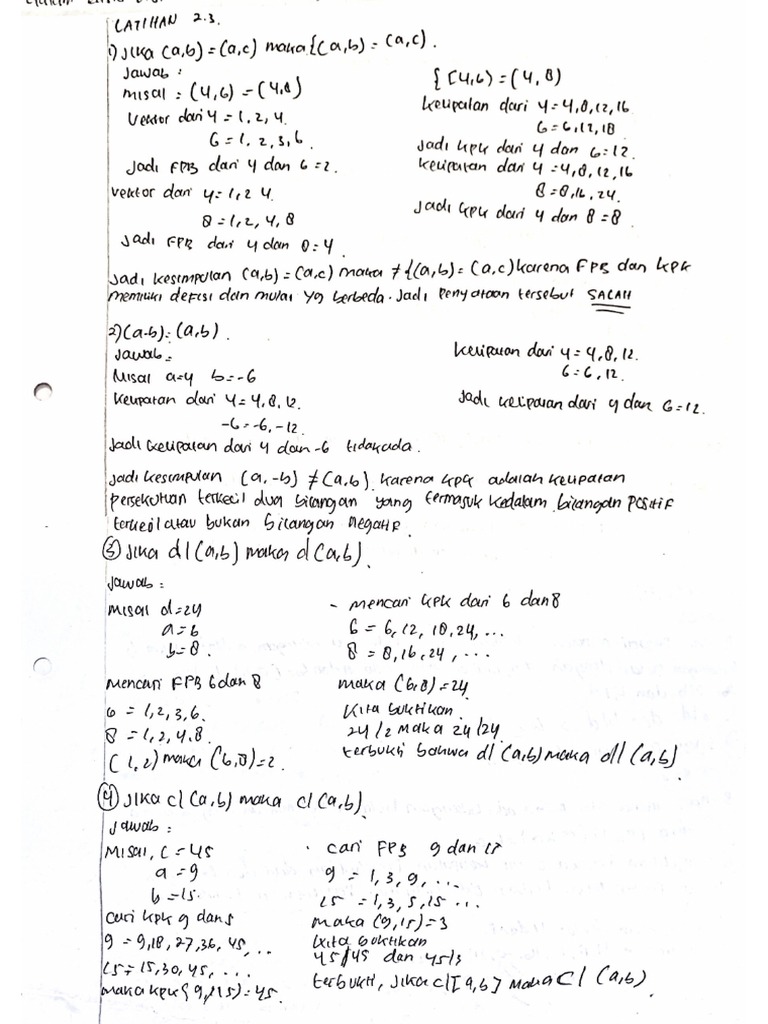 LATIHAN 2.3.
1) Jika (a,b) = (a,c) maka {(a,b) = (a,c).
Jawab :
Misal : (4,6) = (4,8)
Vektor dari 4 = 1, 2, 4.
6 = 1, 2, 3, 6.
Jadi FPB dari 4 dan 6 = 2.
Vektor dari 4 = 1, 2 4.
8 = 1, 2, 4, 8
Jadi FPB dari 4 dan 8 = 4.
{ [4,6) = (4, 8)
Kelipatan dari 4 = 4, 8, 12, 16
6 = 6, 12, 18
Jadi kpk dari 4 dan 6 = 12.
Kelipatan dari 4 = 4, 8, 12, 16
8 = 8, 16, 24.
Jadi kpk dari 4 dan 8 = 8.
Jadi kesimpulan (a,b) = (a,c) maka ≠ {(a,b) = (a,c) karena FPB dan kpk
memiliki defisi dan mulai yg berbeda. Jadi penyataan tersebut SALAH
2) (a-b) = (a,b).
Jawab :
Misal a=4 b=-6
Kelipatan dari 4 = 4, 8, 12.
-6 = -6, -12.
Jadi kelipatan dari 4 dan -6 tidak ada.
Kelipatan dari 4 = 4, 8, 12.
6 = 6, 12.
Jadi kelipatan dari 4 dan 6 = 12.
Jadi kesimpulan (a,-b) ≠ (a,b) karena kpk adalah kelipatan
persekutuan terkecil dua bilangan yang termasuk kedalam bilangan positif
terkecil atau bukan bilangan negatif.
3) Jika d|(a,b) maka d(a,b).
Jawab :
Misal d = 24
a = 6
b = 8
Mencari FPB 6 dan 8
6 = 1, 2, 3, 6.
8 = 1, 2, 4, 8.
(1,2) maka (6,8) = 2.
- mencari kpk dari 6 dan 8
6 = 6, 12, 18, 24, ...
8 = 8, 16, 24, ...
maka (6,8) = 24
Kita buktikan.
24/2 maka 24/24
terbukti bahwa d| (a,b) maka d|| (a,b)
4) Jika c| (a,b) maka c| (a,b).
Jawab :
Misal, c = 45
a = 9
b = 15.
Cari kpk 9 dan 5
9 = 9, 18, 27, 36, 45, ...
15 = 15, 30, 45, ...
maka kpk { 9, 15) = 45.
· cari FPB 9 dan 15
9 = 1, 3, 9, ...
15 = 1, 3, 5, 15 ...
maka (9,15) = 3
kita buktikan
45/45 dan 45/3
terbukti, Jika c|[a,b] maka c| (a,b)